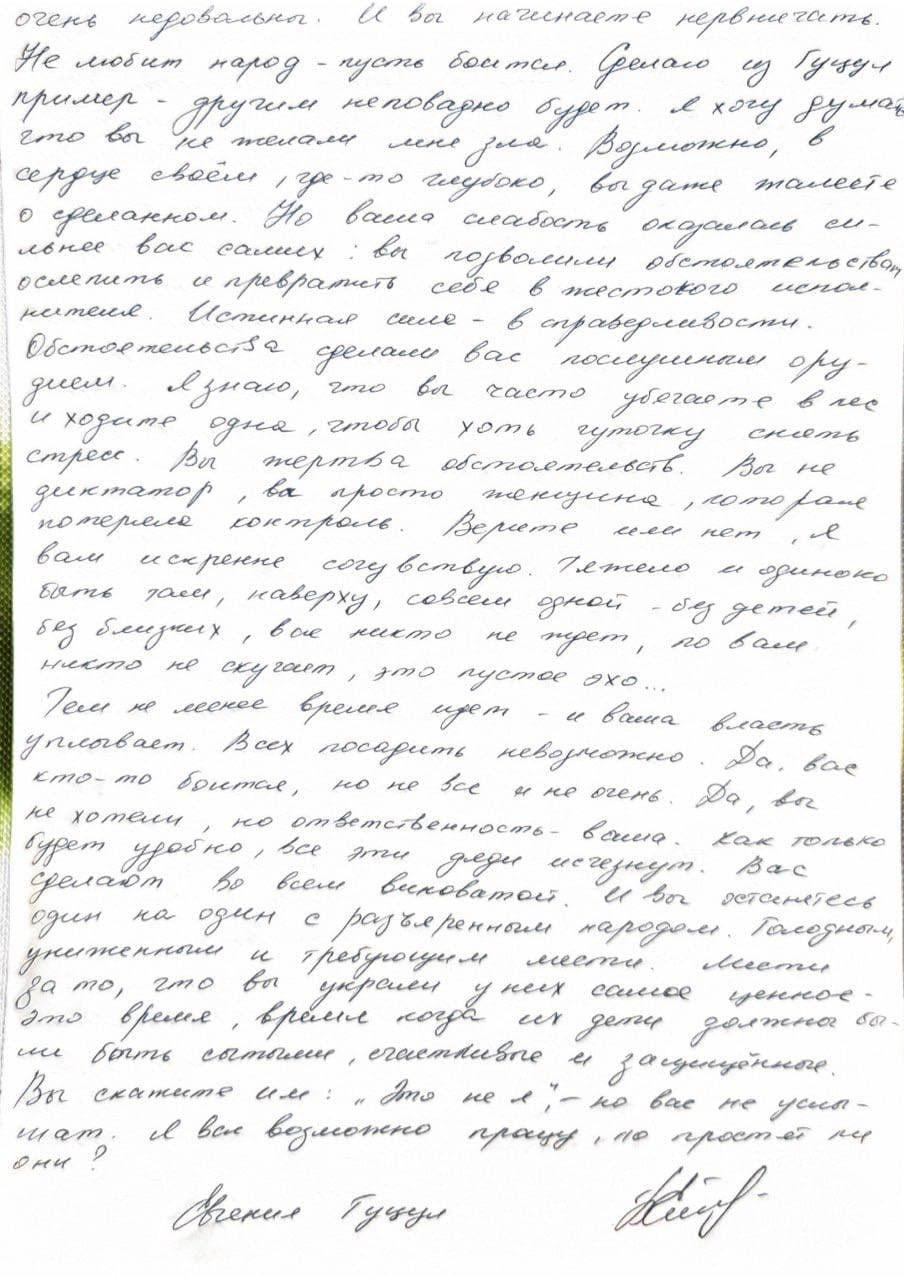 очень недовольны. И вы начинаете нервничать.
Не любит народ - пусть боится. Сделаю из Гуцул
пример - другим неповадно будет. Я хочу думать
что вы не желали мне зла. Возможно, в
сердце своём, где-то глубоко, вы даже жалеете
о сделанном. Но ваша слабость оказалась си-
льнее вас самих: вы позволили обстоятельствам
ослепить и превратить себя в жестокого испол-
нителя. Истинная сила - в справедливости.
Обстоятельства сделали вас послушным ору-
дием. Я знаю, что вы часто убегаете в лес
и ходите одна, чтобы хоть чуточку снять
стресс. Вы жертва обстоятельств. Вы не
диктатор, вы просто женщина, которая
потеряла контроль. Верите или нет, я
вам искренне сочувствую. Тяжело и одиноко
быть там, наверху, совсем одной - без детей,
без близких, вас никто не ждет, по вам
никто не скучает, это пустое эхо...
Тем не менее время идет - и ваша власть
уплывает. Всех посадить невозможно. Да, вас
кто-то боится, но не все и не очень. Да, вы
не хотели, но ответственность - ваша. Как только
будет удобно, все эти дяди исчезнут. Вас
сделают во всем виноватой. И вы останетесь
один на один с разъяренным народом. Голодным,
униженным и требующим мести. Мести
за то, что вы украли у них самое ценное -
это время, время когда их дети должны бы-
ли быть сытыми, счастливые и защищённые.
Вы скажите им: "Это не я", - но вас не услы-
шат. Я вас возможно прощу, но простят ли
они?
Евгения Гуцул